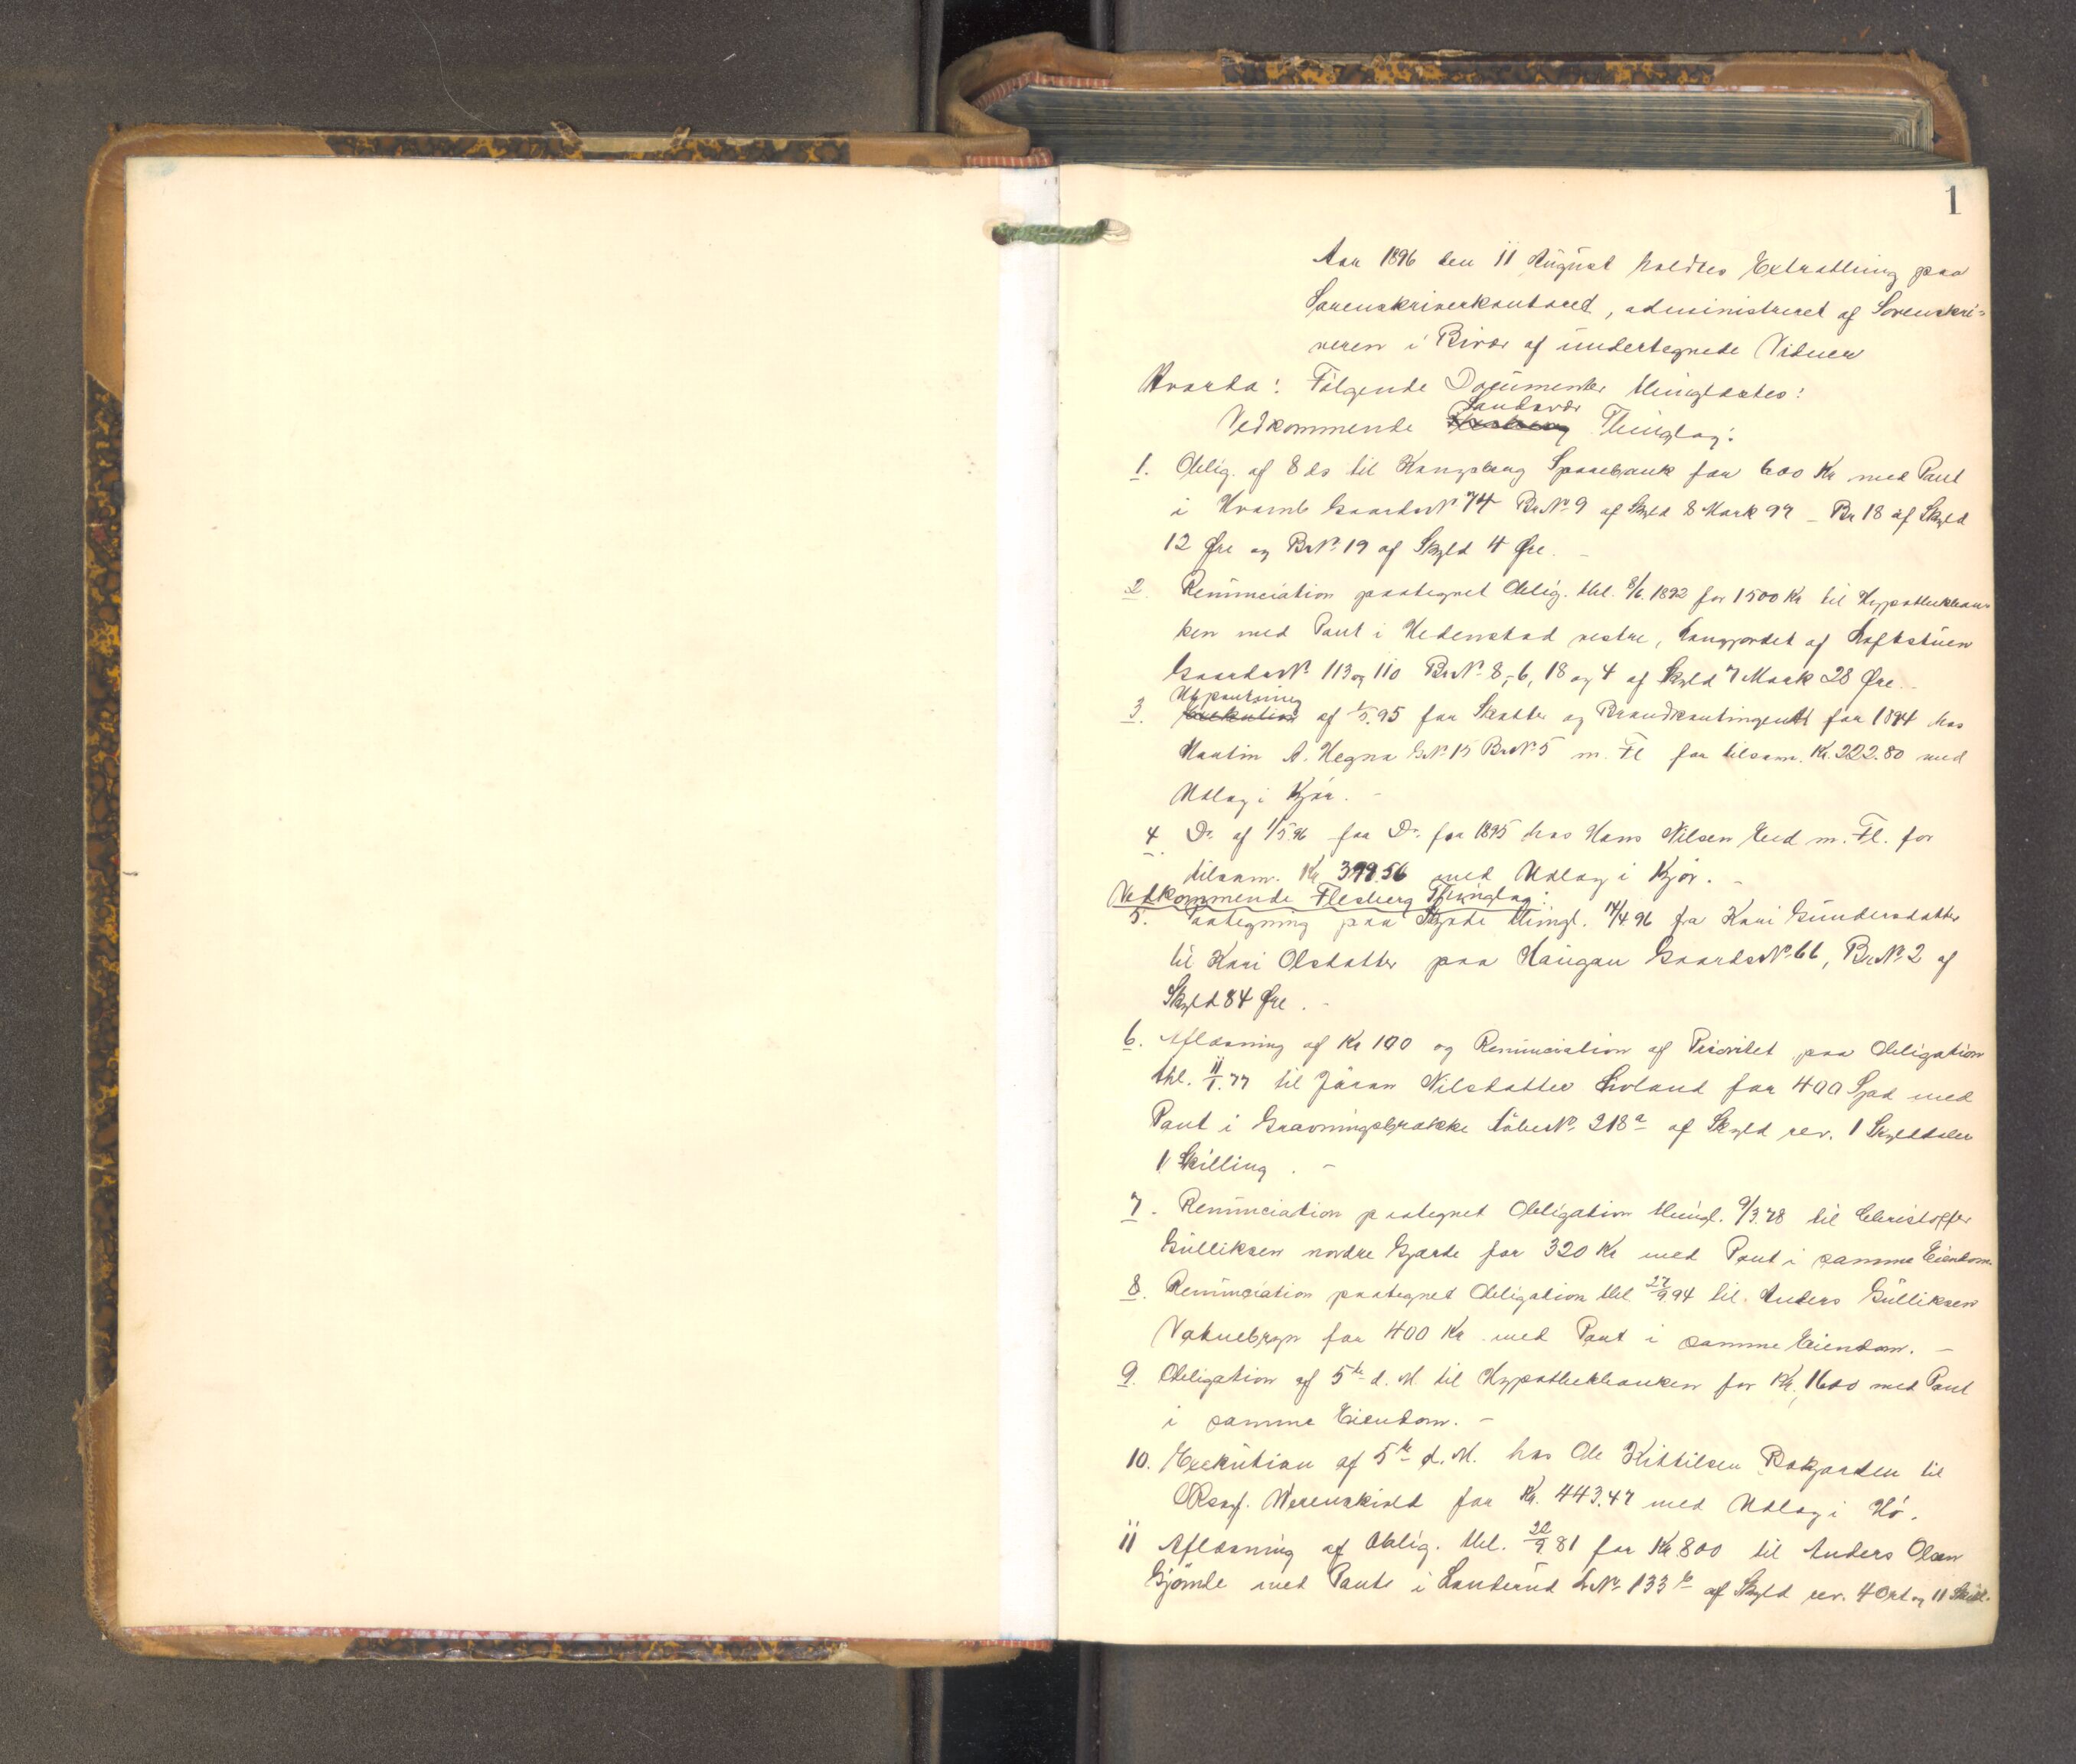 1
Aar 1896 den 11 August holdtes Extrathing paa
Sorenskriverkontoret, administreret af Sorenskri-
veren i Bivær af undertegnede Vidner
Hvorda: Følgende Documenter thinglæstes:
Sandsvær
Vedkommende Thinglag:
1. Oblig. af 8 ds til Kongsberg Sparebank for 600 Kr med Pant
i Gaards No 74 Br No 9 af Skyld 8 Mark 97 – Br 18 af Skyld
12 Øre og Br No 19 af Skyld 4 Øre. –
2. Renunciation paategnet Oblig. thl. 8/6. 1892 for 1500 Kr til Hypothekban-
ken med Pant i Hedenstad vestre, af Loftstuen
Gaards No 113 og 110 Br No 8, 6, 18 og 4 af Skyld 7 Mark 28 Øre. –
Udpantning
3. Exekution af 1/5. 95 for Skatter og Brandkontingent for 1894 hos
Martin A. Hegna G No 15 Br No 5 m. Fl for tilsam. Kr. 222.80 med
Udlæg i Kjør. –
4. Do af 1/5 96 for Do for 1895 hos Hans Nilsen m. Fl. for
tilsam. Kr 399.56 med Udlæg i Kjør. –
Vedkommende Flesberg Thinglag:
5. Paategning paa Skjøde thingl. 14/4 96 fra Kari Gundersdatter
til Kari Olsdatter paa Haugan Gaards No 66, Br No 2 af
Skyld 84 Øre. –
6. Aflæsning af Kr 100 og Renunciation af Prioritet paa Obligation
thl. 11/1. 77 til Jøran Nilsdatter Livland for 400 Spd med
Pant i Gravningsbrække Løbe No 218 a af Skyld rev. 1 Skylddaler
1 Skilling. –
7. Renunciation paategnet Obligation thingl. 9/3. 78 til Christoffer
Gulliksen nordre Gjærde for 320 Kr med Pant i samme Eiendom.
8. Renunciation paategnet Obligation thl 27/9 94 til Anders Gulliksen
Vatnebryn for 400 Kr med Pant i samme Eiendom. –
9. Obligation af 5te d. M. til Hypothekbanken for Kr. 1600 med Pant
i samme Eiendom. –
10. Exekution af 5te d. M. hos Ole Kittilsen Bakjorden til
ORsagf. Werenskiold for Kr. 443.47 med Udlæg i Hø.
11 Aflæsning af Oblig. thl. 20/9 81 for Kr 800 til Anders Olsen
Gjømle med Pant i Landerud L No 133 b af Skyld rev. 4 Ort og 11 Skill.